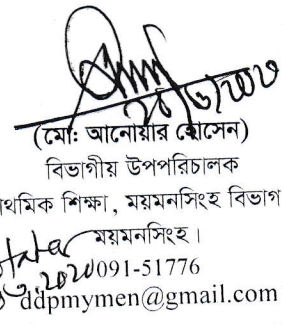 (মো: আনোয়ার হোসেন)
বিভাগীয় উপপরিচালক
থমিক শিক্ষা, ময়মনসিংহ বিভাগ
ময়মনসিংহ।
091-51776
ddpmymen@gmail.com